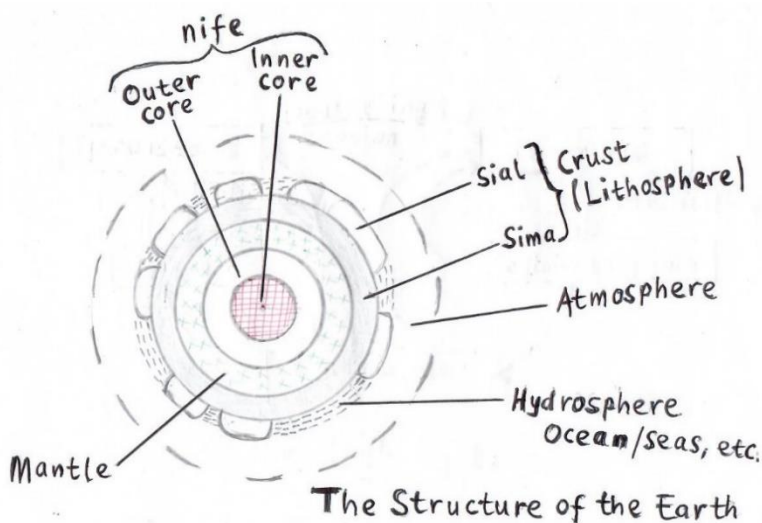 nife
Outer
core
Inner
core
Sial
Sima
Crust
(Lithosphere)
Atmosphere
Hydrosphere
Ocean/seas, etc.
Mantle
The Structure of the Earth